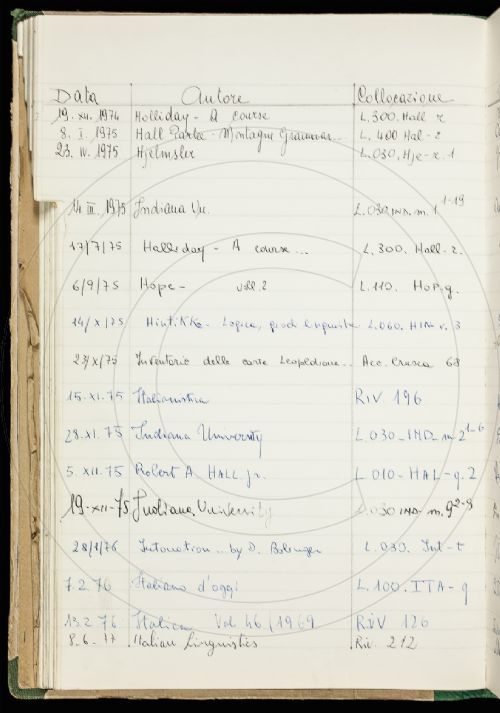 Data Autore Collocazione
19. XII. 1974 Holliday - A course L.300. Hall r
8. I. 1975 Hall Partee - Montague Grammar.. L. 400 Hal - r
23. IV. 1975 Hjelmslev L.030, Hje-r.1
14 III. 1975 Indiana Un. L.030.IND. m. 1 1-19
17/7/75 Halliday - A course ... L. 300. Hall-r.
6/9/75 Hope - voll. 2 L.110. Hop. g.
14/X/75 Hintikka - Logica, giochi linguistici L.060. HIN- v. 3
23/X/75 Inventario delle carte Leopoldiane... Acc. Crusca 68
15. XI. 75 Italianistica RIV 196
28. XI. 75 Indiana University L.030-IND-m. 2 1-6
5 XII. 75 Robert A. HALL jr. L 010-HAL-g. 2
19-XII-75 Indiana University L.030 IND. m. 9 2-9
28/1/76 Intonation .. by D. Bolinger L. 030. Int-t
7.2.76 Italiano d'oggi L.100. ITA-g
13.2.76 Italica Vol 46 (1969 RIV 126
8.6.77 Italian Linguistics Riv. 212